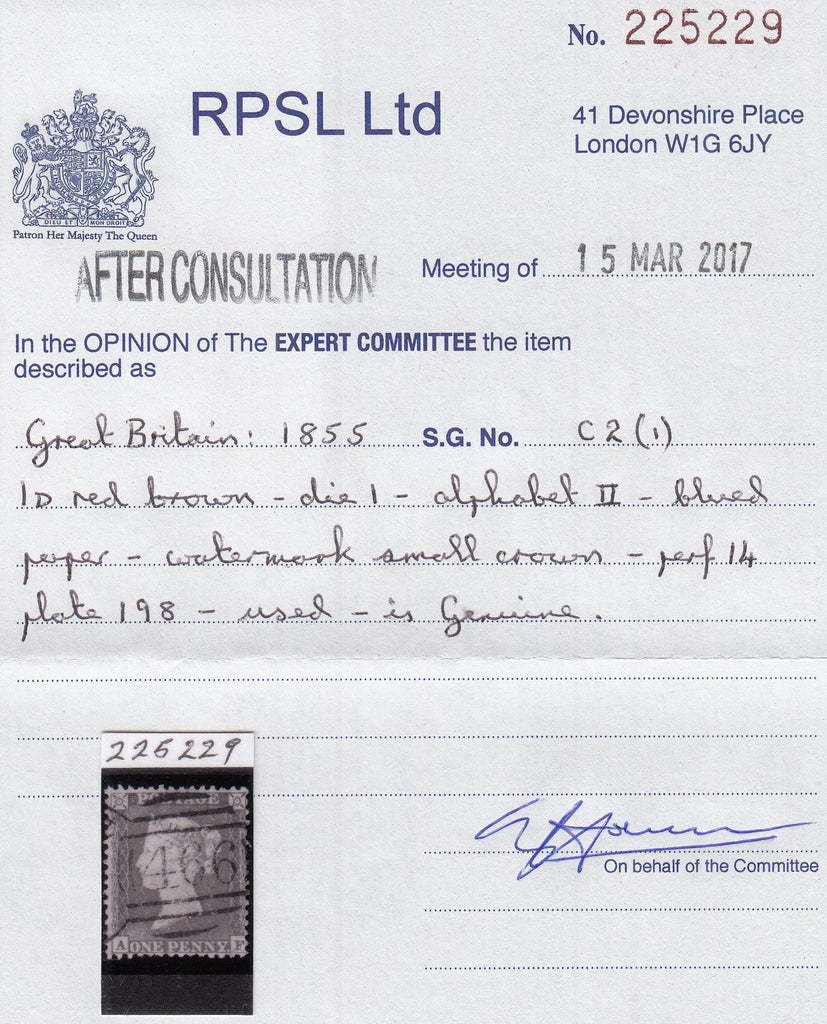 No. 225229
RPSL Ltd
41 Devonshire Place
London W1G 6JY
DIEU ET MON DROIT
Patron Her Majesty The Queen
AFTER CONSULTATION
Meeting of 15 MAR 2017
In the OPINION of The EXPERT COMMITTEE the item
described as
Great Britain: 1855 S.G. No. C2(1)
1D red brown - die 1 - alphabet II - blued
paper - watermark small crown - perf 14
plate 198 - used - is Genuine.
225229
POSTAGE
466
A ONE PENNY. F
On behalf of the Committee